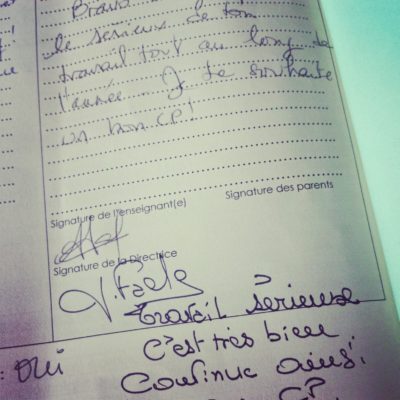 Bravo
le sérieux de ton
travail tout au long de
l'année. Je te souhaite
un bon CP!
Signature de l'enseignant(e)
Signature des parents
Signature de la Directrice
travail sérieuse
C'est très bien
Continue ainsi
: oui
CP